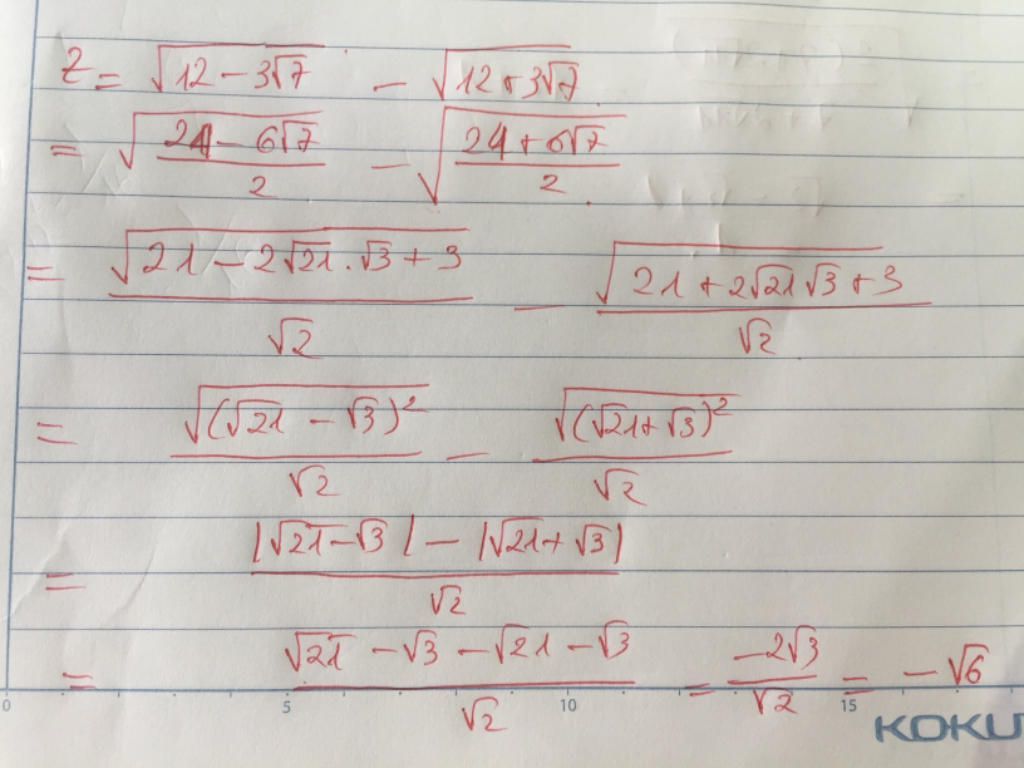 Z = √(12 - 3√7) - √(12 + 3√7)
= √((24 - 6√7)/2) - √((24 + 6√7)/2)
= √(21 - 2√21 . √3 + 3)/√2 - √(21 + 2√21 √3 + 3)/√2
= √((√21 - √3)²)/√2 - √((√21 + √3)²)/√2
= (|√21 - √3| - |√21 + √3|)/√2
= (√21 - √3 - √21 - √3)/√2 = -2√3/√2 = -√6
0 5 10 15
KOKU